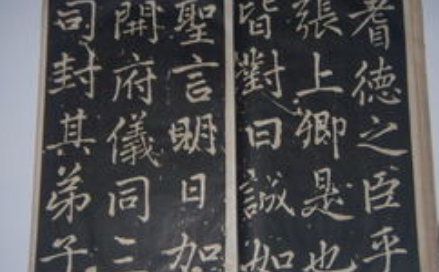 耆德之臣乎
張上卿是也
皆對曰誠如
聖言明日加
開府儀同三
司封其弟子